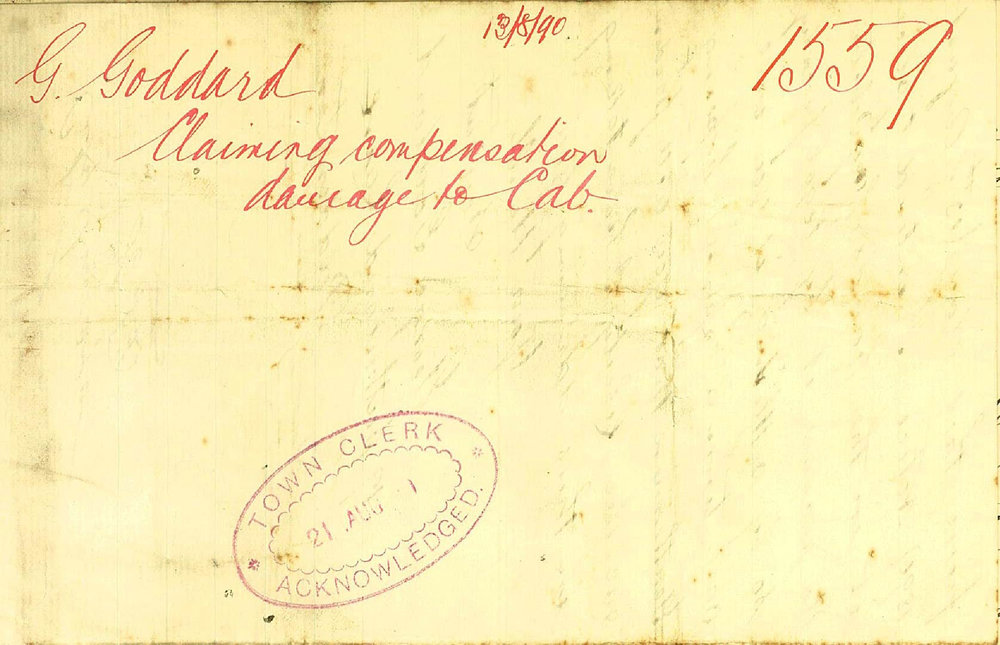 13/8/90.
1559
G. Goddard
Claiming compensation
damage to Cab.
TOWN CLERK
21 AUG
ACKNOWLEDGED.